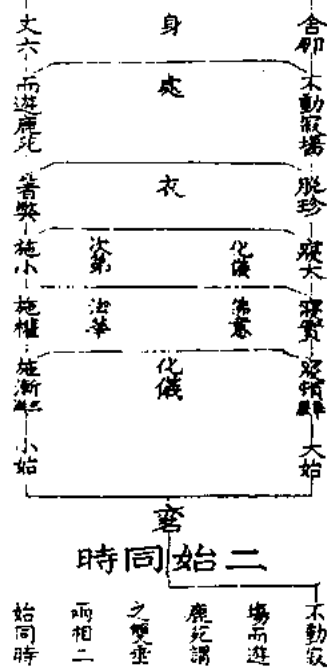 舍那
身
丈六
不動寂場
處
而遊鹿苑
脫珍
衣
著弊
寢大
化儀
次第
施小
寢實
佛意
法華
施權
寢頓
化儀
施漸
大始
小始
二始同時
不動寂
場而遊
鹿苑謂
之雙垂
兩相二
始同時